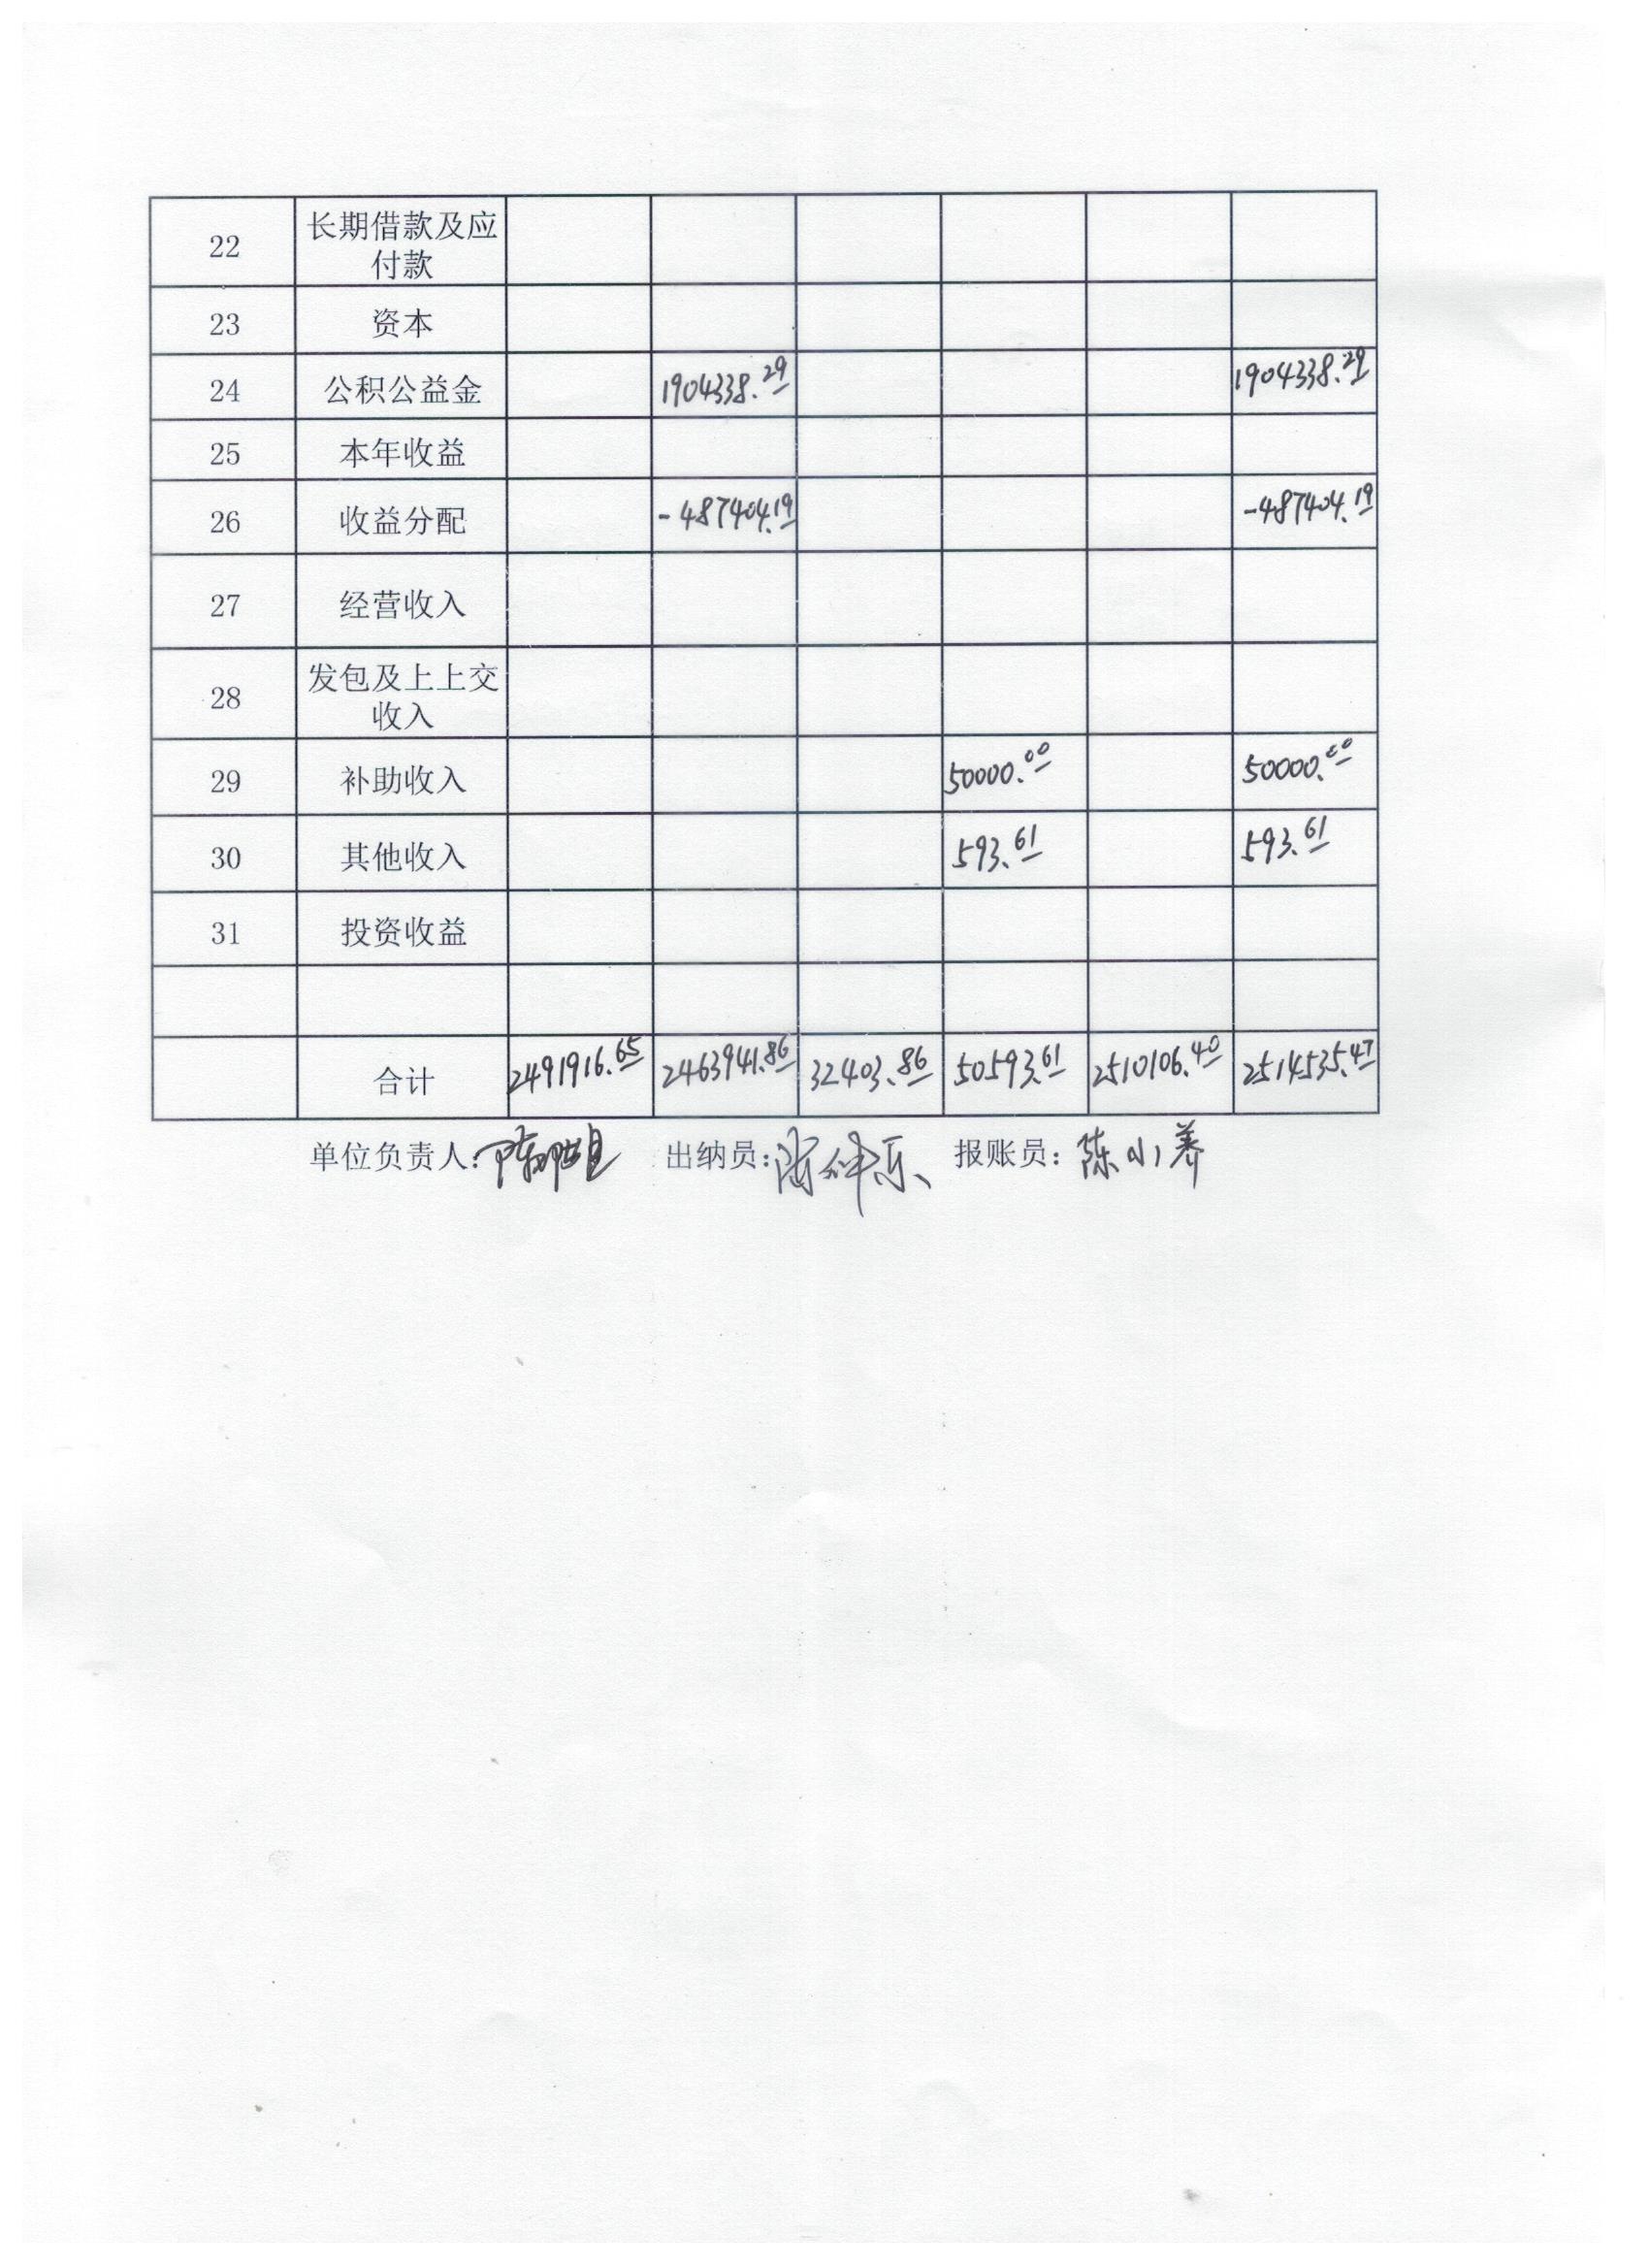 22 长期借款及应
付款
23 资本
24 公积公益金 1904338.29 1904338.29
25 本年收益
26 收益分配 -487404.19 -487404.19
27 经营收入
28 发包及上上交
收入
29 补助收入 50000.00 50000.00
30 其他收入 593.61 593.61
31 投资收益
合计 2491916.65 2463941.86 32403.86 50593.61 2510106.40 2514535.47
单位负责人: 出纳员: 报账员: 陈小养